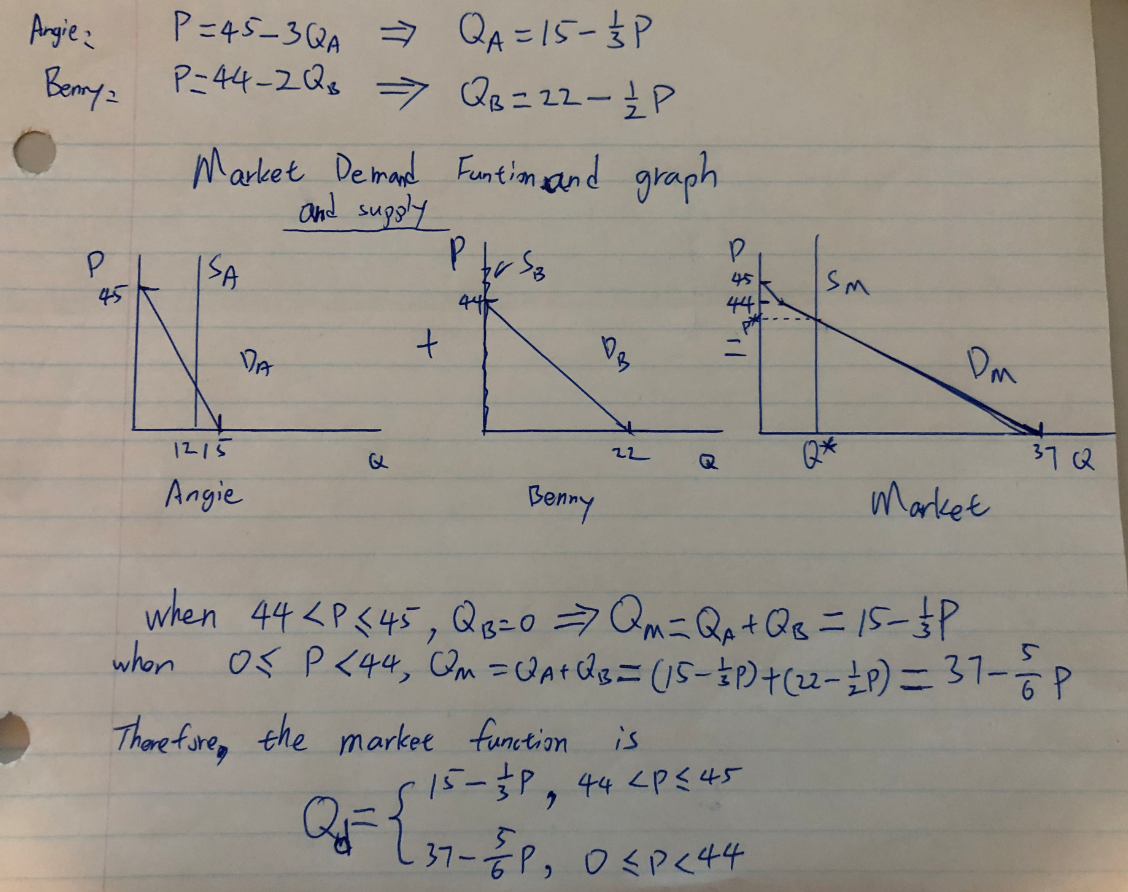 Angie: P=45-3Q_A ⇒ Q_A=15-⅓P
Benny: P=44-2Q_B ⇒ Q_B=22-½P
Market Demand Funtion and graph
and supply
P 45 S_A D_A 12 15 Q
Angie
+
P 44 S_B D_B 22 Q
Benny
=
P 45 44 P* S_M D_M Q* 37 Q
Market
when 44<P≤45, Q_B=0 ⇒ Q_M=Q_A+Q_B=15-⅓P
when 0≤P<44, Q_M=Q_A+Q_B=(15-⅓P)+(22-½P)=37-⅚P
Therefore, the market function is
Q_d={ 15-⅓P, 44<P≤45
37-⅚P, 0≤P<44